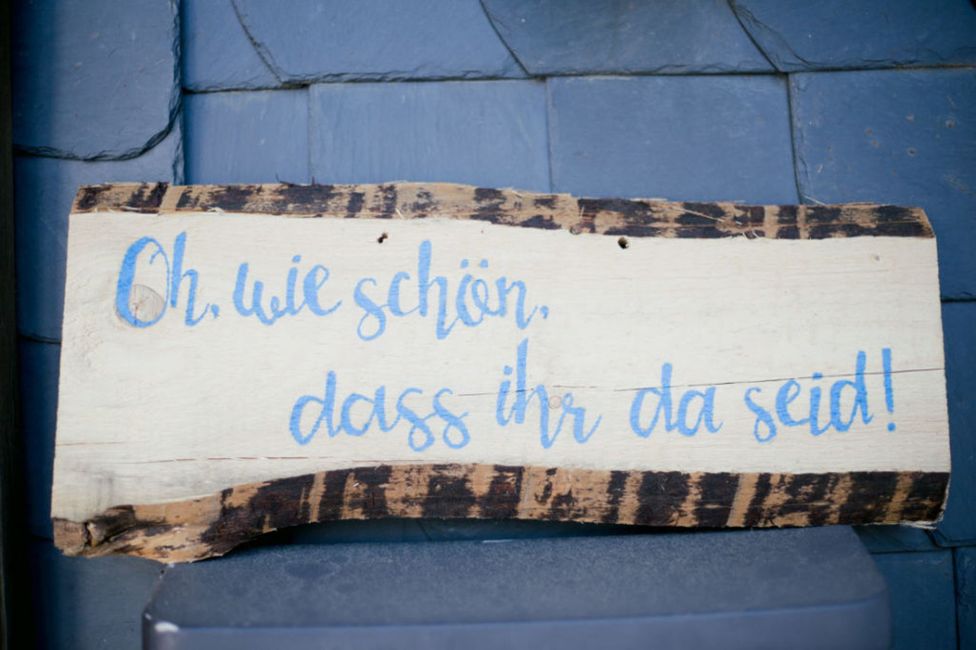 Oh, wie schön,
dass ihr da seid!